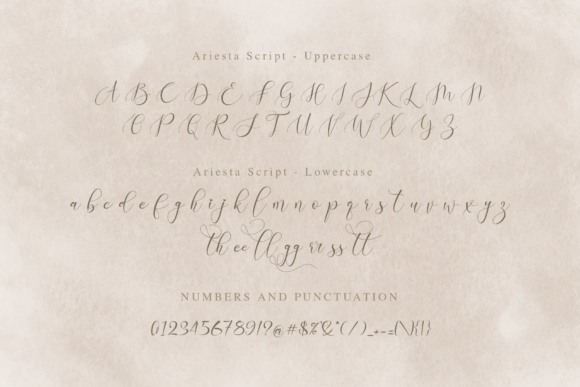 Ariesta Script - Uppercase
A B C D E F G H I J K L M N
O P Q R S T U V W X Y Z
Ariesta Script - Lowercase
a b c d e f g h i j k l m n o p q r s t u v w x y z
th ee ll gg rr ss tt
NUMBERS AND PUNCTUATION
0123456789!?@#$%&*(/)_+-=[\]{|}